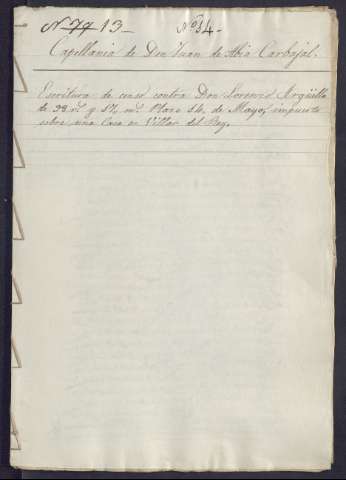 N. 77 13- Nº 14.
Capellania de Don Juan de Abia Carbajal.
Escritura de censo contra Don Lorenzo Argüello
de 33 rs. y 17 ms. Plazo 14 de Mayo, impuesto
sobre una Casa en Villar del Rey.